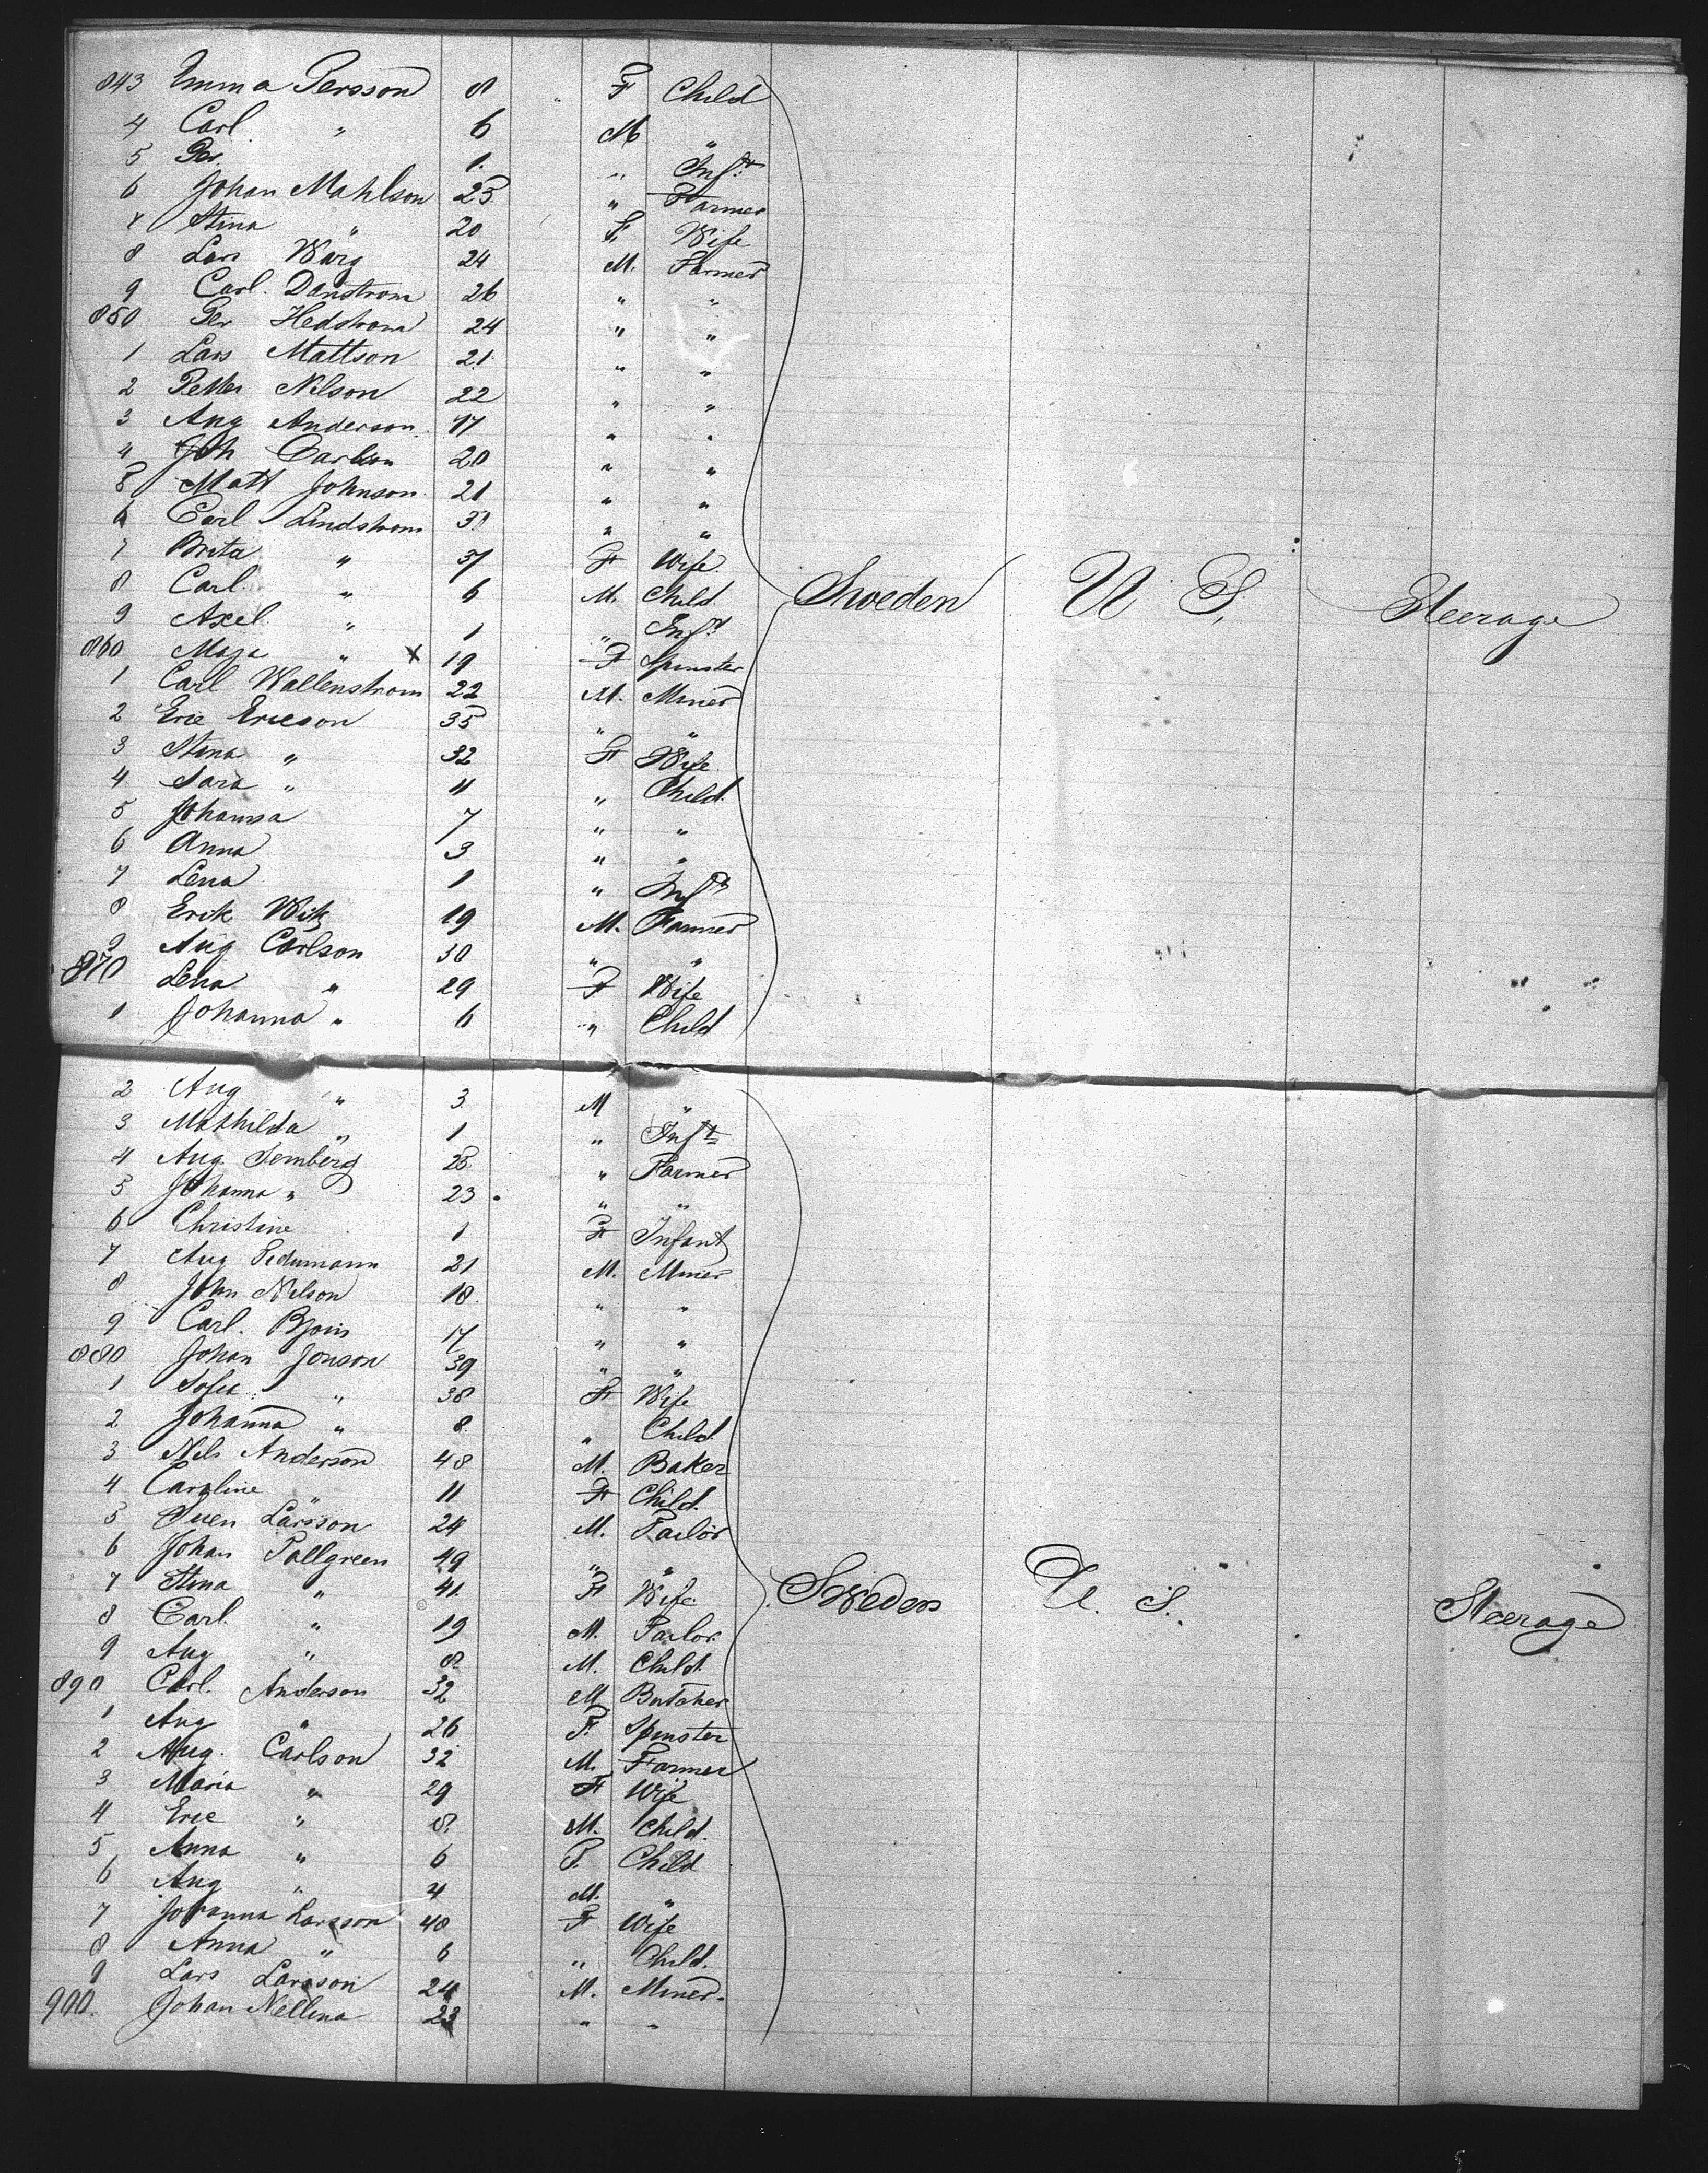 843 Emma Persson 8 F Child
4 Carl " 6 M "
5 Per 1. " Inft
6 Johan Mahlson 25 " Farmer
7 Stina " 20 F. Wife
8 Lars Warg 24 M. Farmer
9 Carl. Danstrom 26 " "
850 Per Hedstrom 24 " "
1 Lars Mattson 21. " "
2 Petter Nilson 22 " "
3 Aug Anderson. 17 " "
4 Joh Carlson 20 " "
5 Matt Johnson. 21 " "
6 Carl Lindstrom 30 " "
7 Brita " 31 F Wife.
8 Carl. " 6 M. Child.
9 Axel. " 1 " Inft
Sweden U S. Steerage
860 Maja " x 19 F Spinster
1 Carl Wallenstrom 22 M. Miner
2 Eric Ericson 35 " "
3 Stina " 32 F Wife
4 Sara " 11 " Child.
5 Johanna 7 " "
6 Anna 3 " "
7 Lena 1 " Inft
8 Erik Wik 19 M. Farmer
9 Aug Carlson 30 " "
870 Lena " 29 F Wife
1 Johanna " 6 " Child
2 Aug " 3. M "
3 Mathilda " 1 " Inft
4 Aug Semberg 25 " Farmer
5 Johanna " 23. " "
6 Christine 1 F Infant
7 Aug 21 M. Miner
8 John Nelson 18. " "
9 Carl. 17 " "
880 Johan Jonson 39 " "
1 Sofia " 38 F Wife
2 Johanna " 8. " Child.
3 Nels Anderson 48 M. Baker
4 Caroline " 11 F Child.
5 Sven Larsson 24 M. Tailor
6 Johan Tallgreen 49 " "
7 Stina " 41. F Wife.
Sweden U. S. Steerage
8 Carl. " 19 M. Tailor
9 Aug " 8. M. Child.
890 Carl. Anderson 32 M Butcher
1 Aug " 26 F. Spinster
2 Aug. Carlson 32 M. Farmer
3 Maria " 29 F Wife
4 Eric " 8. M. Child.
5 Anna " 6 F. Child
6 Aug " 4 M. "
7 Johanna Larsson 48 F Wife
8 Anna " 6 " Child.
9 Lars Larsson 24 M. Miner.
900. Johan Nellina 23 " "